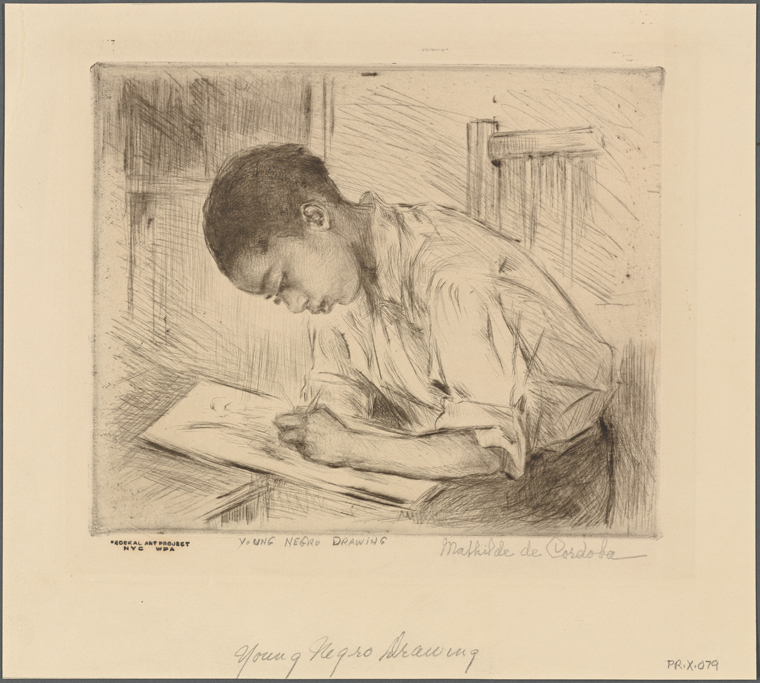 FEDERAL ART PROJECT
NYC WPA
YOUNG NEGRO DRAWING
Mathilde de Cordoba
Young Negro Drawing
PR.X.079